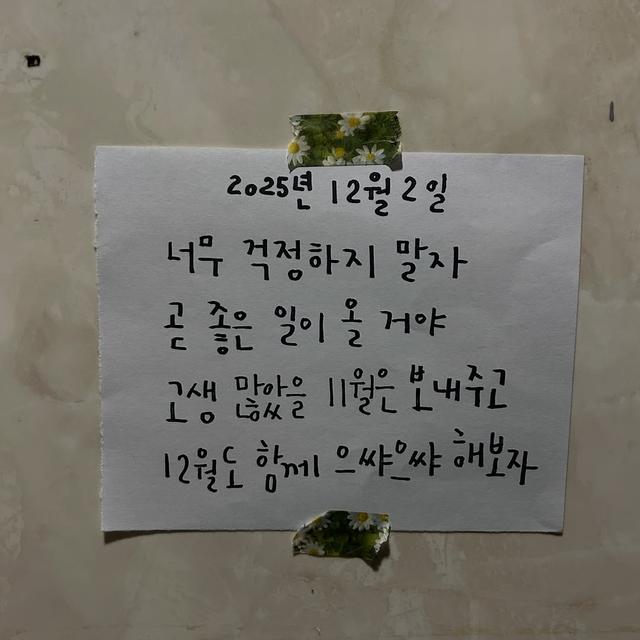 2025년 12월 2일
너무 걱정하지 말자
곧 좋은 일이 올 거야
고생 많았을 11월은 보내주고
12월도 함께 으쌰으쌰 해보자